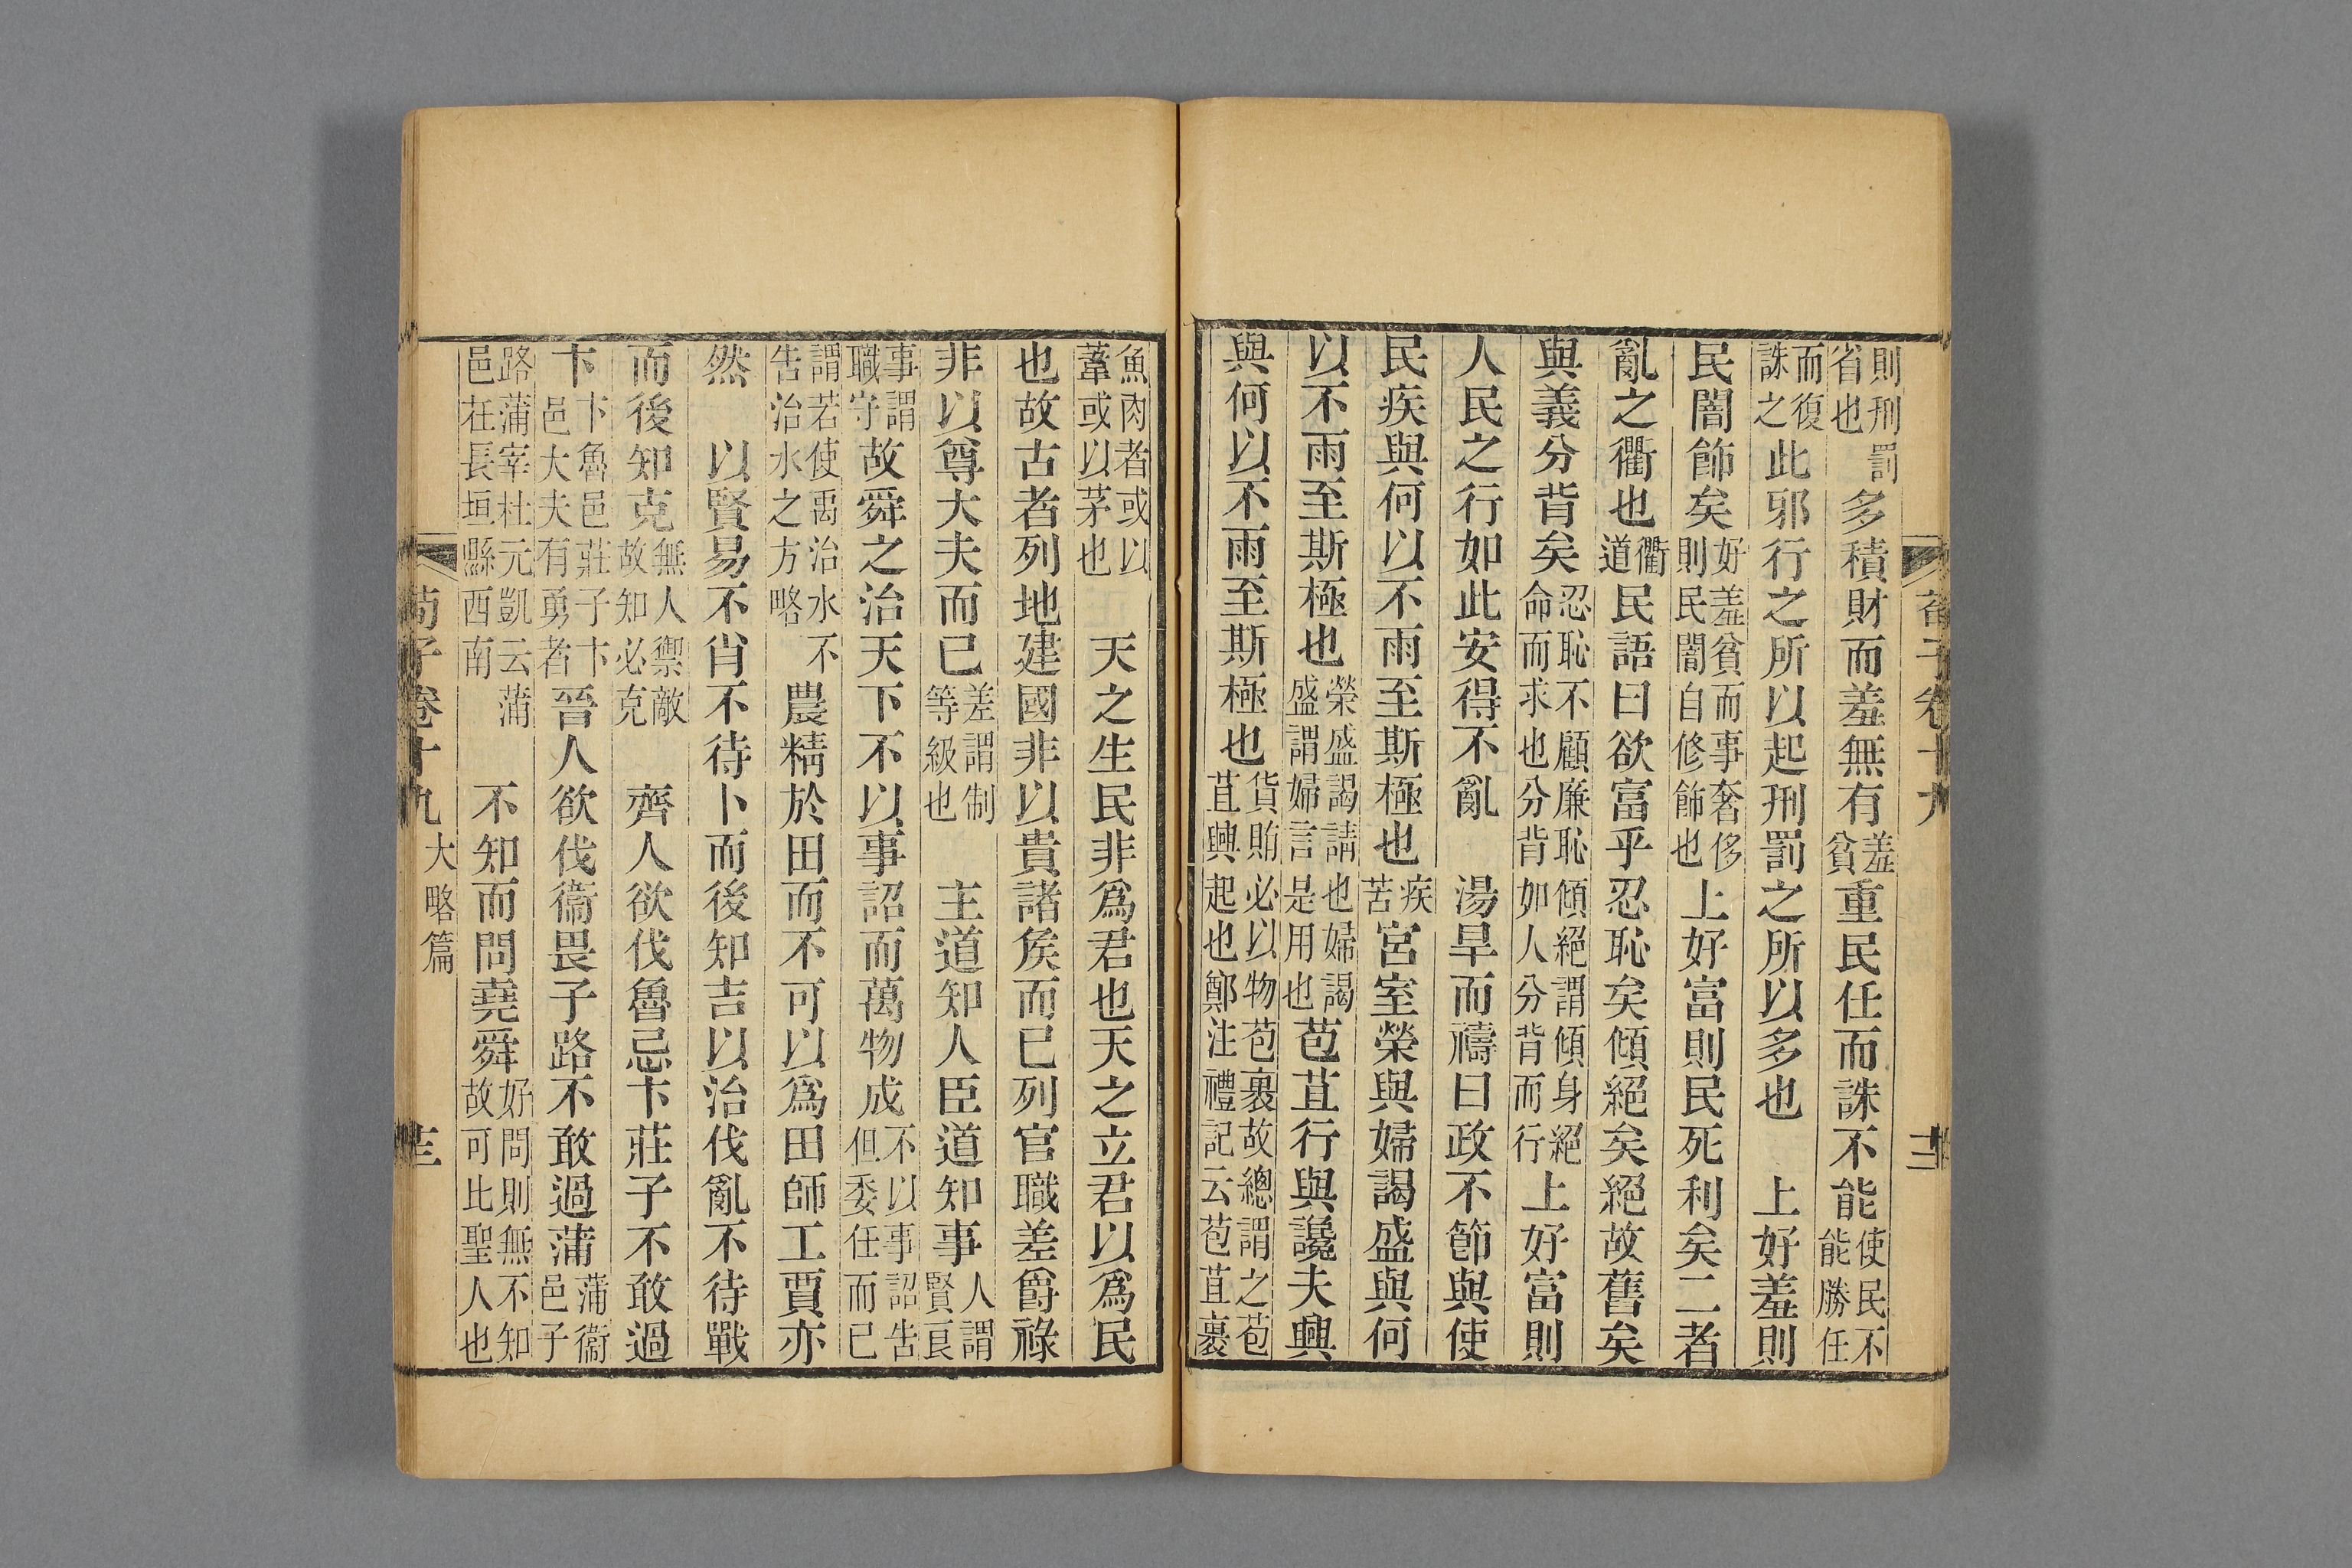 則刑罰
省也
多積財而羞無有
羞
貧
重民任而誅不能
使民不
能勝任
而復
誅之
此邪行之所以起刑罰之所以多也　上好羞則
民闇飾矣
好羞貧而事奢侈
則民闇自修飾也
上好富則民死利矣二者
亂之衢也
衢
道
民語曰欲富乎忍恥矣傾絕矣絕故舊矣
與義分背矣
忍恥不顧廉恥傾絕謂傾身絕
命而求也分背如人分背而行
上好富則
人民之行如此安得不亂　湯旱而禱曰政不節與使
民疾與何以不雨至斯極也
疾
苦
宮室榮與婦謁盛與何
以不雨至斯極也
榮盛謁請也婦謁
盛謂婦言是用也
苞苴行與讒夫興
與何以不雨至斯極也
貨賄必以物苞裹故總謂之苞
苴興起也鄭注禮記云苞苴裹
魚肉者或以
葦或以茅也
天之生民非爲君也天之立君以爲民
也故古者列地建國非以貴諸矦而已列官職差爵祿
非以尊大夫而已
差謂制
等級也
主道知人臣道知事
人謂
賢良
事謂
職守
故舜之治天下不以事詔而萬物成
不以事詔告
但委任而已
謂若使禹治水不
告治水之方略
農精於田而不可以爲田師工賈亦
然　以賢易不肖不待卜而後知吉以治伐亂不待戰
而後知克
無人禦敵
故知必克
齊人欲伐魯忌卞莊子不敢過
卞
卞魯邑莊子卞
邑大夫有勇者
晉人欲伐衞畏子路不敢過蒲
蒲衞
邑子
路蒲宰杜元凱云蒲
邑在長垣縣西南
不知而問堯舜
好問則無不知
故可比聖人也
荀子卷十九
大略篇